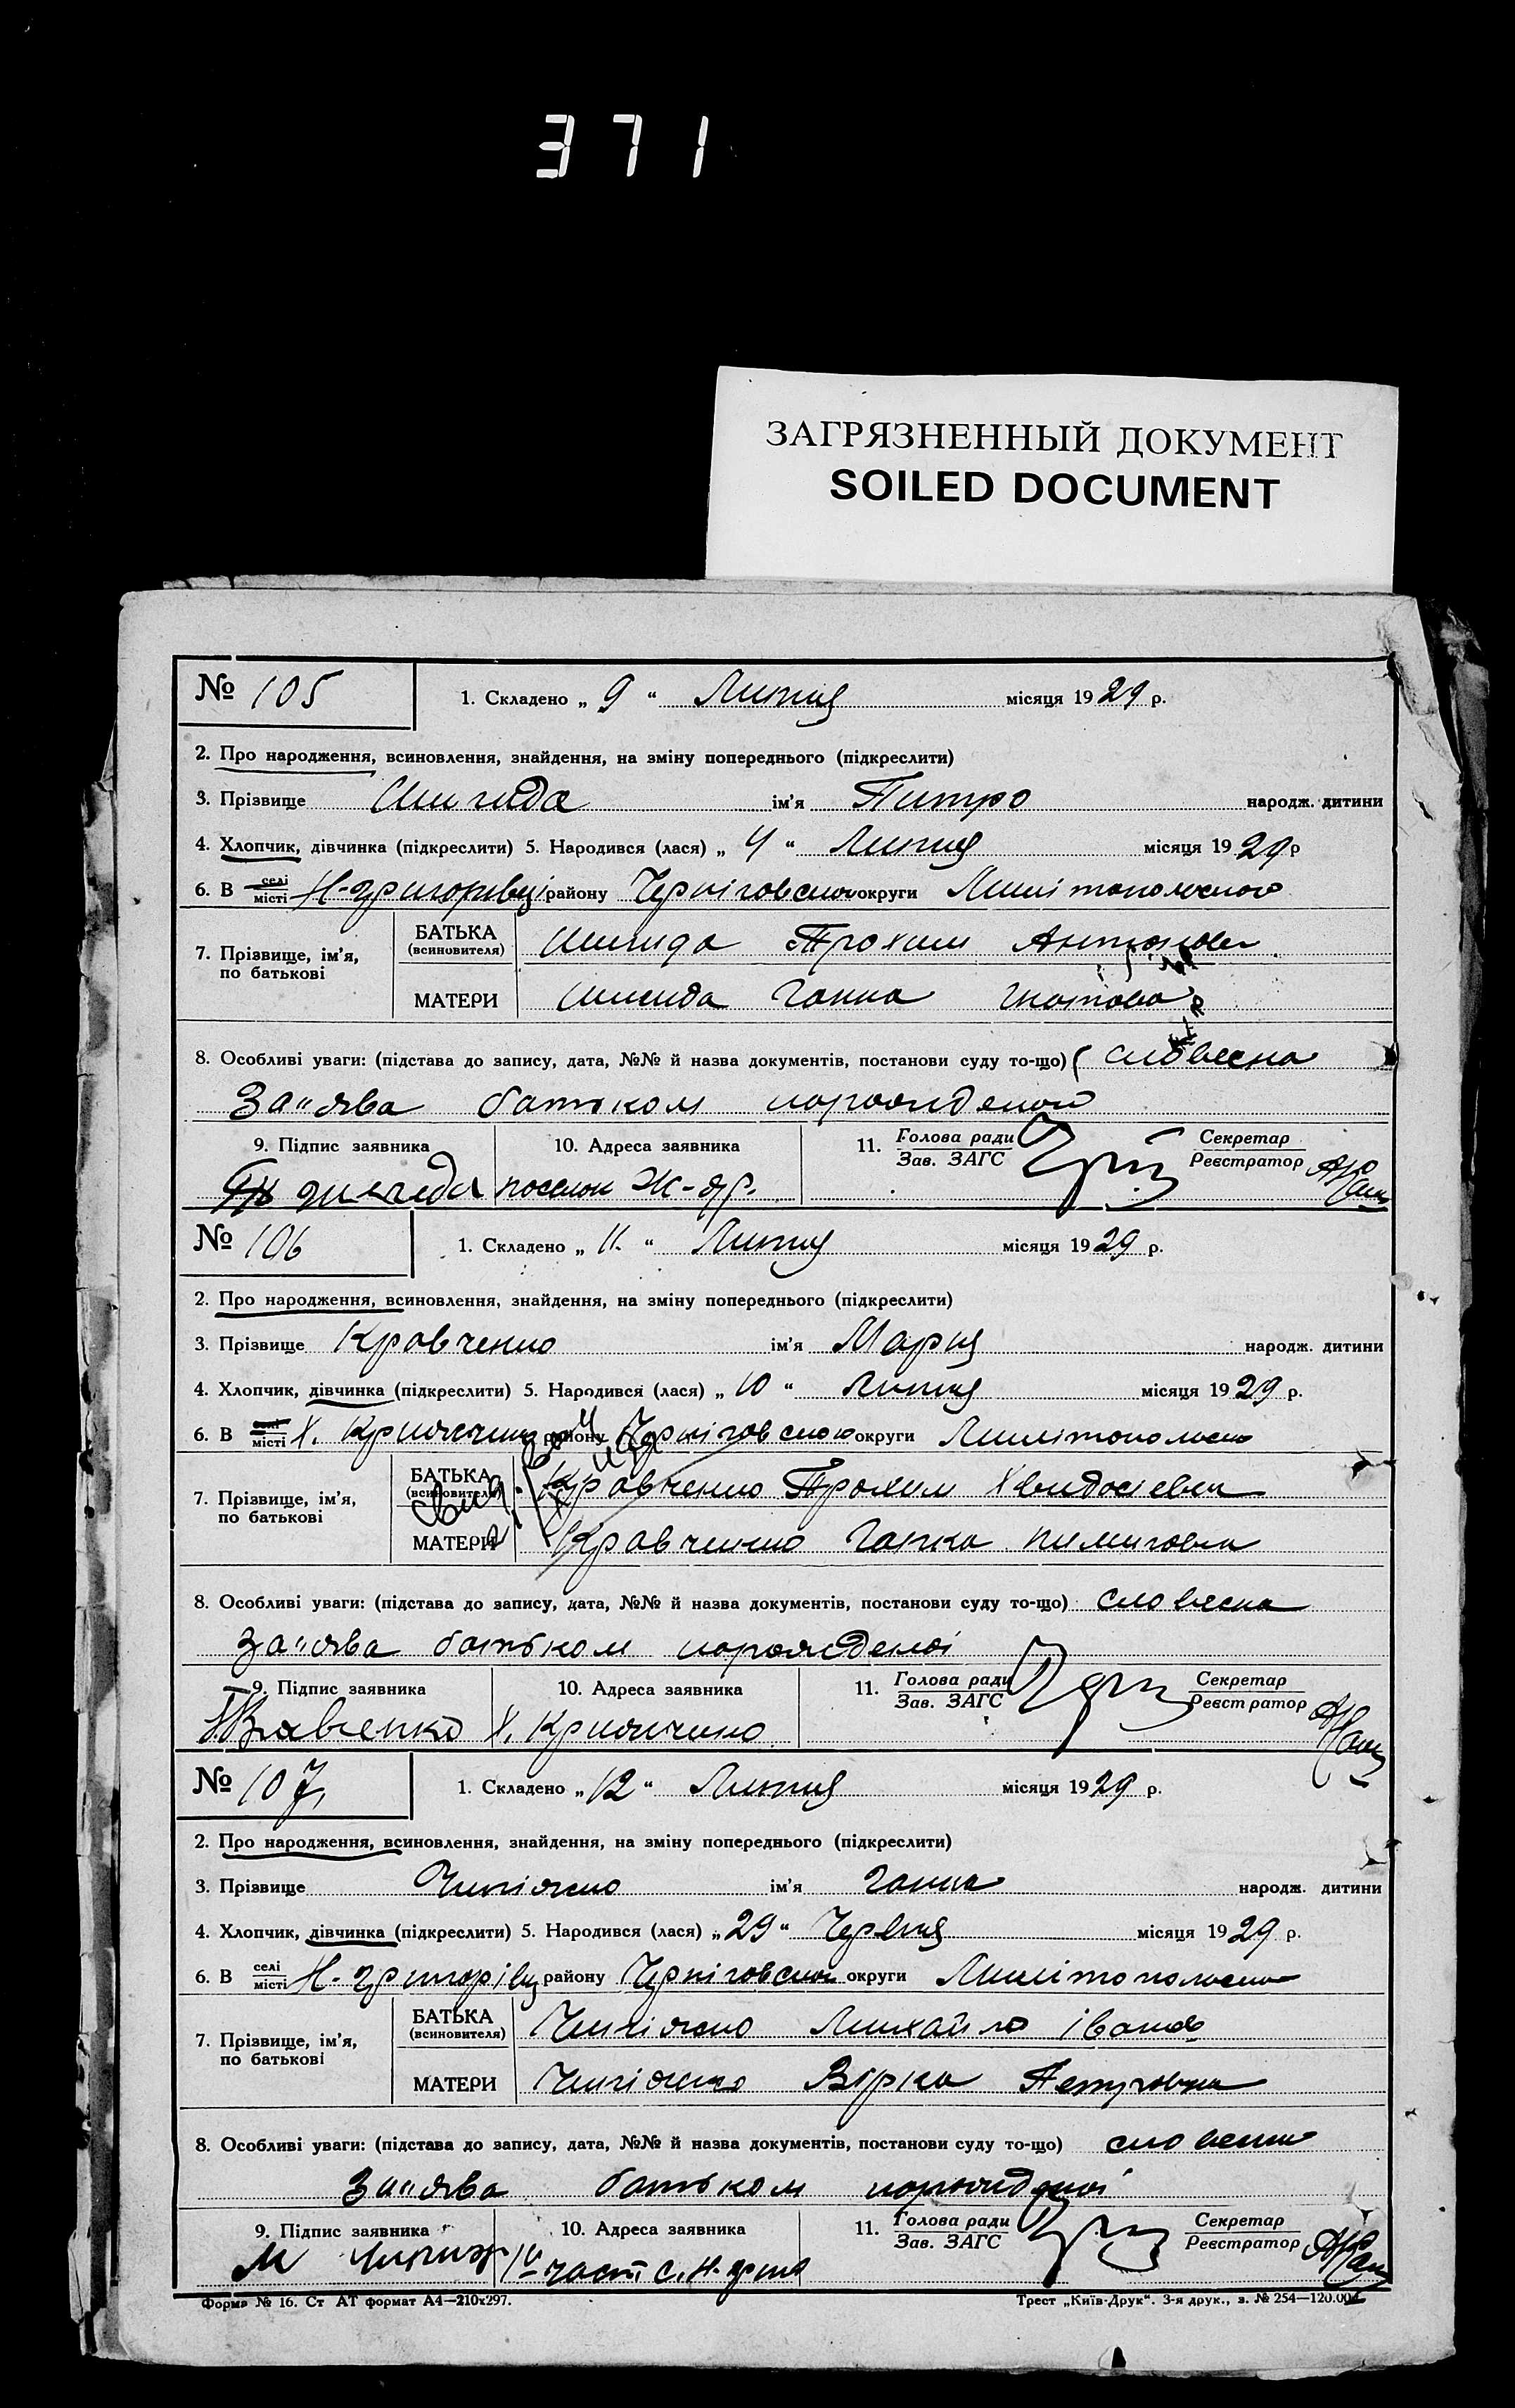 371
ЗАГРЯЗНЕННЫЙ ДОКУМЕНТ
SOILED DOCUMENT
№ 105 1. Складено „ 9 “ Липня місяця 1929 р.
2. Про народження, всиновлення, знайдення, на зміну попереднього (підкреслити)
3. Прізвище Шигида ім'я Питро народж. дитини
4. Хлопчик, дівчинка (підкреслити) 5. Народився (лася) „ 4 “ Липня місяця 1929 р
6. В селі місті Н-Григорівці району Черніговського округи Милітопольского
7. Прізвище, ім'я, по батькові
БАТЬКА (всиновителя) Шигида Трохим Антонов
МАТЕРИ Шигида Ганна Гнатова
8. Особливі уваги: (підстава до запису, дата, №№ й назва документів, постанови суду то-що) словесна
За"ява батьком
9. Підпис заявника 10. Адреса заявника 11. Голова ради Зав. ЗАГС Секретар Реєстратор
поселок Ж-др.
№ 106 1. Складено „ 11. “ Липня місяця 1929 р.
2. Про народження, всиновлення, знайдення, на зміну попереднього (підкреслити)
3. Прізвище Кравченко ім'я Мария народж. дитини
4. Хлопчик, дівчинка (підкреслити) 5. Народився (лася) „ 10 “ Липня місяця 1929 р.
6. В селі місті Х. району Черніговского округи Милітопольско
7. Прізвище, ім'я, по батькові
БАТЬКА (всиновителя) Кравченко Трохим
МАТЕРИ Кравченко Гапка
8. Особливі уваги: (підстава до запису, дата, №№ й назва документів, постанови суду то-що) словесна
за"ява батьком порожденої
9. Підпис заявника 10. Адреса заявника 11. Голова ради Зав. ЗАГС Секретар Реєстратор
№ 107, 1. Складено „ 12 “ Липня місяця 1929 р.
2. Про народження, всиновлення, знайдення, на зміну попереднього (підкреслити)
3. Прізвище ім'я Ганна народж. дитини
4. Хлопчик, дівчинка (підкреслити) 5. Народився (лася) „ 29 “ Червня місяця 1929 р.
6. В селі місті Н-Григорівц району Черніговской округи Милітопольско
7. Прізвище, ім'я, по батькові
БАТЬКА (всиновителя) Михайло Іванов
МАТЕРИ Вірка Петровна
8. Особливі уваги: (підстава до запису, дата, №№ й назва документів, постанови суду то-що) словесна
За"ява батьком порожденої
9. Підпис заявника 10. Адреса заявника 11. Голова ради Зав. ЗАГС Секретар Реєстратор
Форма № 16. Ст АТ формат А4—210х297. Трест „Київ-Друк“. 3-я друк., з. № 254—120.000